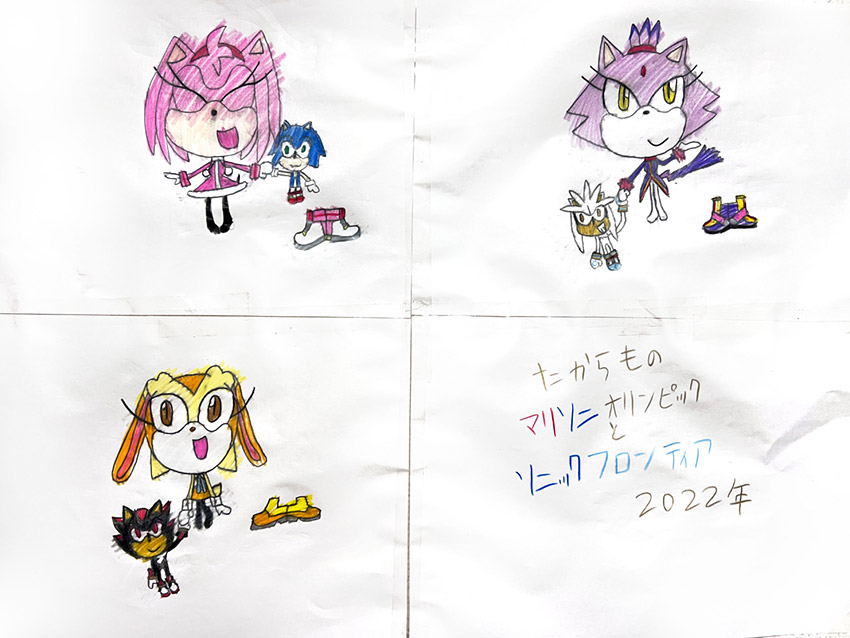 たからもの
マリソニオリンピック
と
ソニックフロンティア
2022年